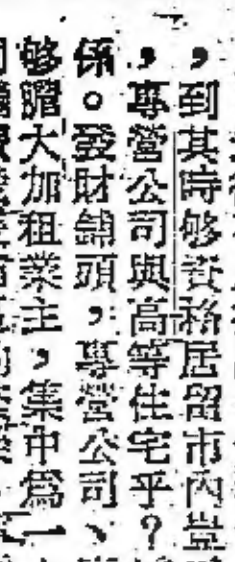 ，到其時够資格居留市內豈
，專營公司與高等住宅乎？
係。發財錦頭，專營公司、
够膽大加租業主，集中爲一